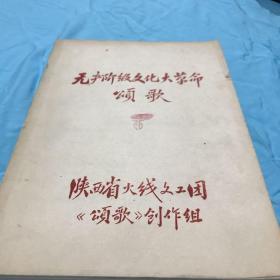 无产阶级文化大革命
颂歌
陕西省火线文工团
《颂歌》创作组